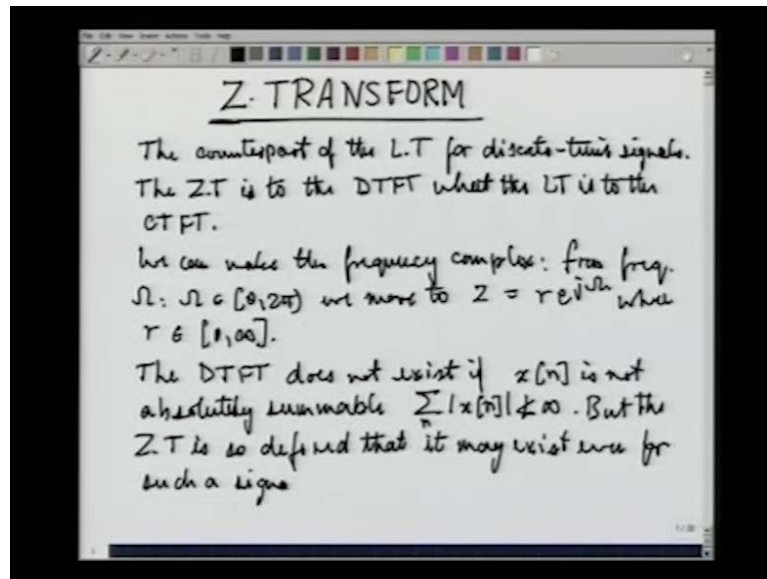 Z-TRANSFORM
The counterpart of the L.T for discrete-time signals.
The Z.T is to the DTFT what the LT is to the
CTFT.
We can make the frequency complex: from freq.
Ω: Ω ∈ [0,2π) we move to z = re^{jΩ} where
r ∈ [0,∞].
The DTFT does not exist if x[n] is not
absolutely summable ∑_n |x[n]| ≮ ∞. But the
Z.T is so defined that it may exist even for
such a signa
1/20